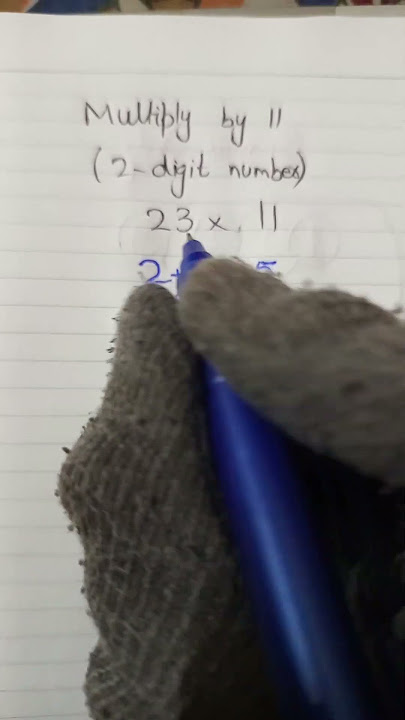 Multiply by 11
(2-digit number)
23 × 11
2+ 5